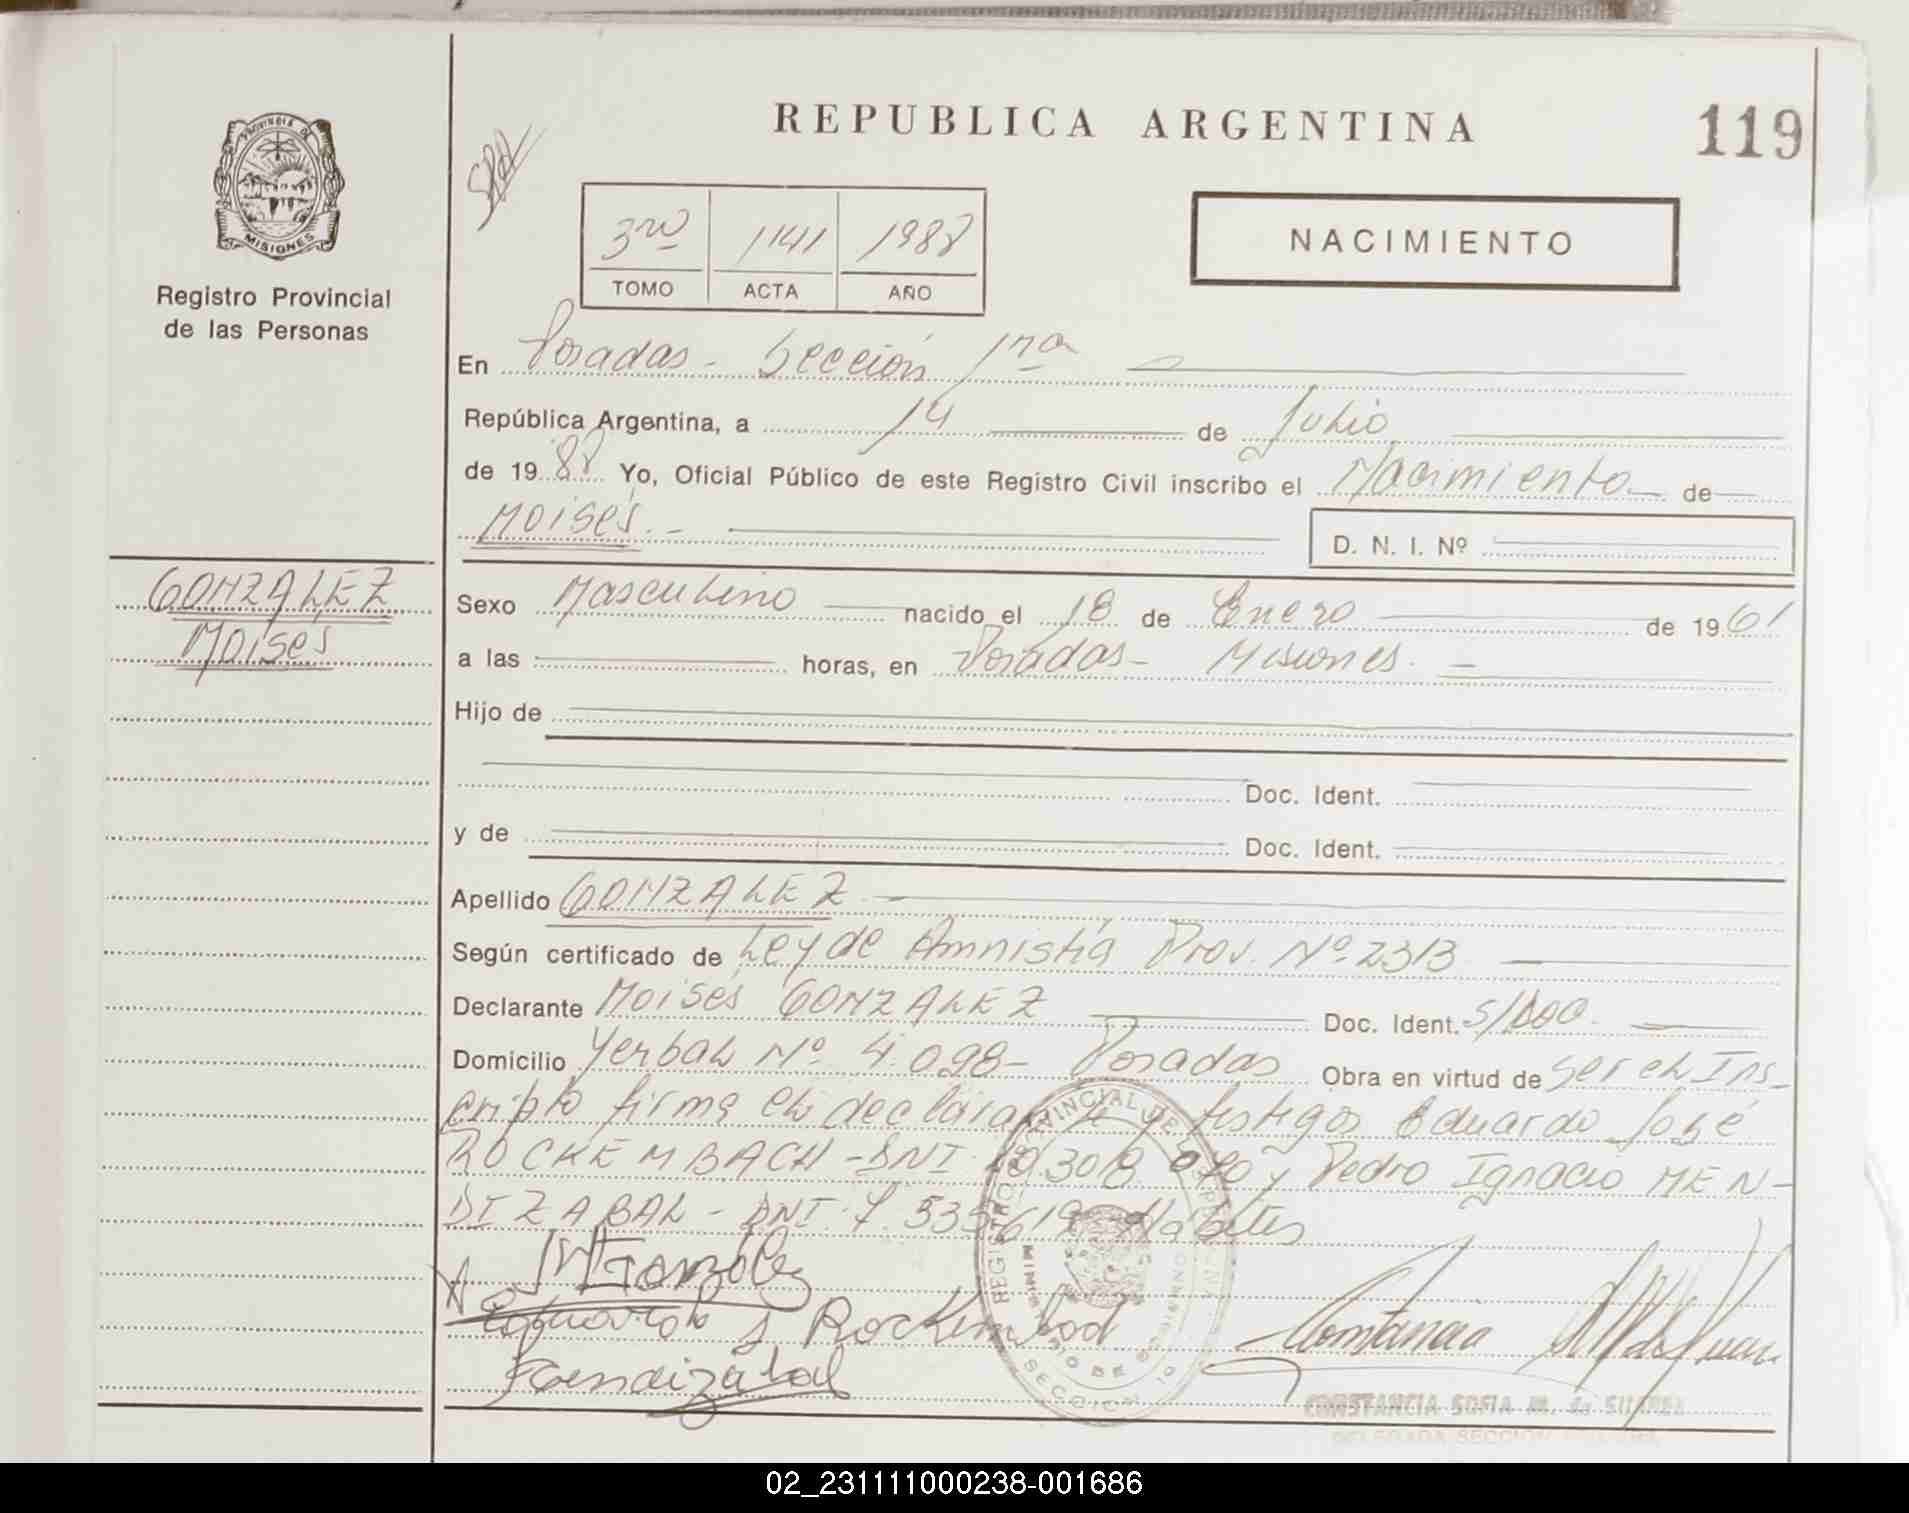 REPUBLICA ARGENTINA
119
PROVINCIA DE
MISIONES
Registro Provincial
de las Personas
3ro 1141 1988
TOMO ACTA AÑO
NACIMIENTO
En Posadas - Sección 1ra
República Argentina, a 14 de Julio
de 1988 Yo, Oficial Público de este Registro Civil inscribo el Nacimiento de
Moisés.-
D. N. I. Nº
GONZALEZ
Moises
Sexo Masculino nacido el 18 de Enero de 1961
a las horas, en Posadas - Misiones.
Hijo de
Doc. Ident.
y de Doc. Ident.
Apellido GONZALEZ
Según certificado de Ley de Amnistía Prov. Nº 2313
Declarante Moises GONZALEZ Doc. Ident. S/DOC.
Domicilio Yerbal Nº 4.098- Posadas Obra en virtud de ser el Ins-
cripto firma el declarante y testigos Eduardo José
ROCKEMBACH - DNI. y Pedro Ignacio MEN-
DIZABAL - DNI. 7.535.619 Habiles
M Gonzalez
Eduardo J Rockembach
Mendizabal
Constancia
REGISTRO PROVINCIAL DE LAS PERSONAS
MINISTERIO DE GOBIERNO
SECCION 1º
CONSTANCIA SOFIA M. de SUAREZ
DELEGADA SECCION PRIMERA
02_231111000238-001686